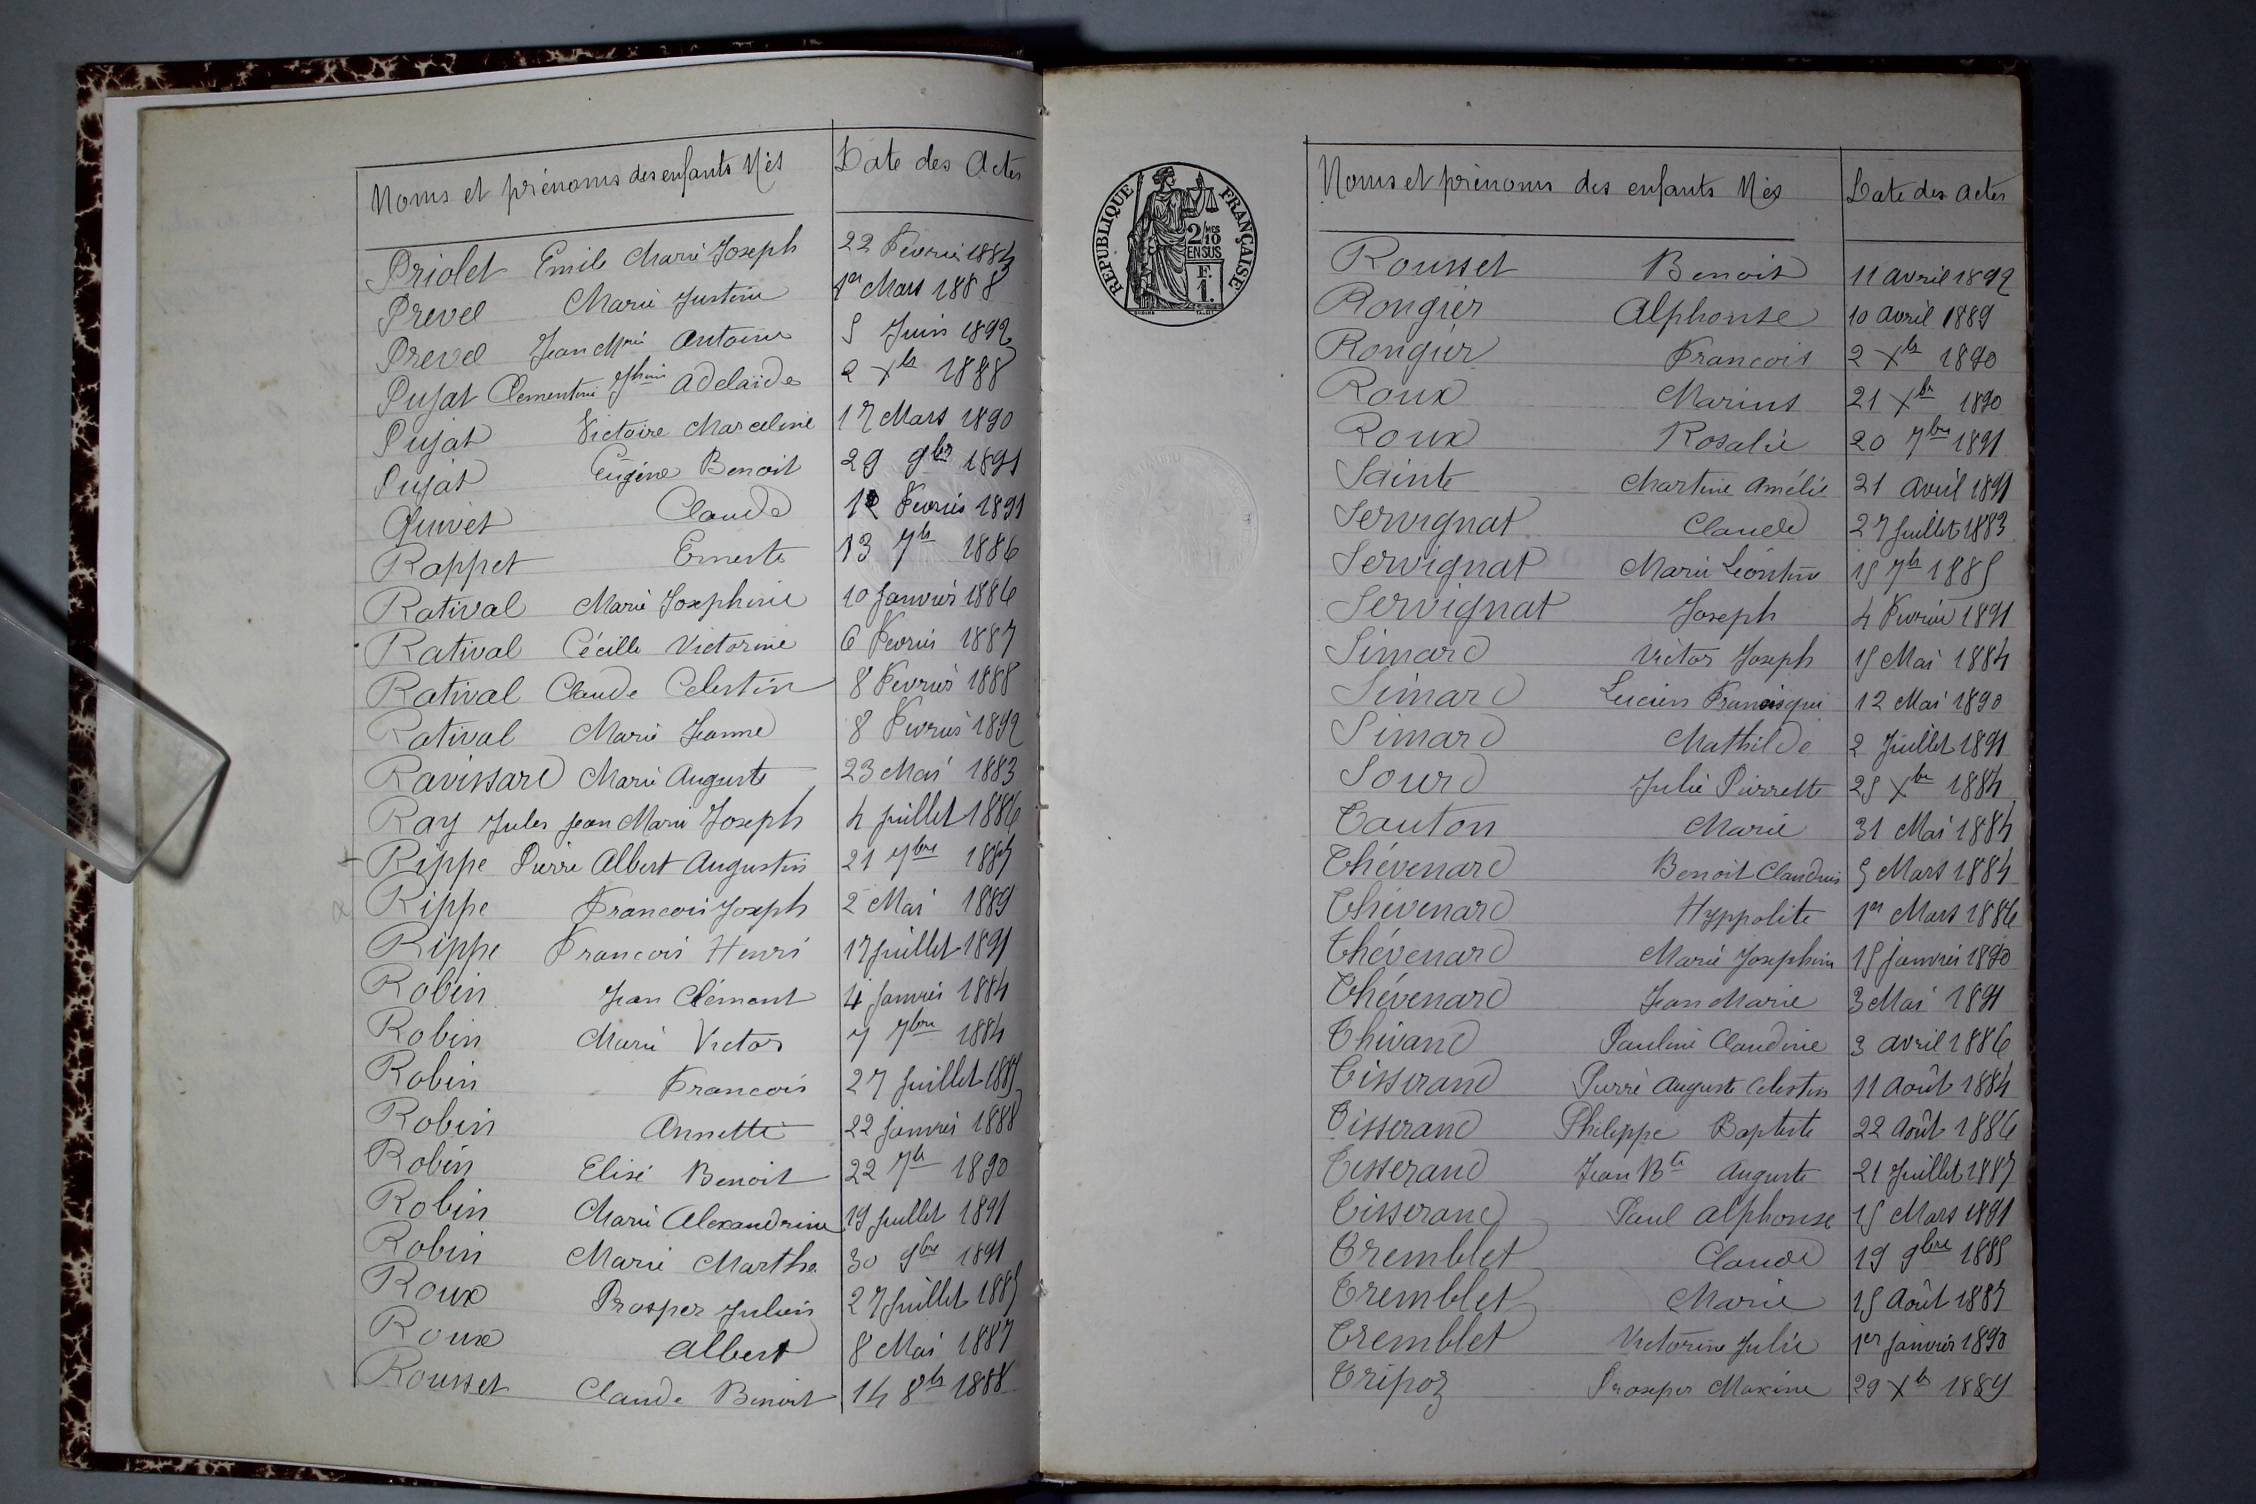 Noms et prénoms des enfants Nés Date des Actes
Priolet Emile Marie Joseph 22 Février 1884
Prevel Marie Justine 1er Mars 1888
Prevel Jean Mrie Antoine 5 Juin 1892
Pujat Clementine Jphine Adelaïde 2 Xbr 1888
Pujat Victoire Marceline 17 Mars 1890
Pujat Eugène Benoit 29 9br 1891
Quivet Claude Février 1891
Rappet Erneste 13 7br 1886
Ratival Marie Josephine 10 Janvier 1886
Ratival Cécille Victorine 6 Fevrier 1887
Ratival Claude Celestin 8 Fevrier 1888
Ratival Marie Jeanne 8 Fevrier 1892
Ravissard Marie Auguste 23 Mai 1883
Ray Jules Jean Marie Joseph 4 Juillet 1886
Rippe Pierre Albert Augustin 21 7bre
Rippe Francois Joseph 2 Mai 1889
Rippe Francois Henri 17 Juillet 1891
Robin Jean Clément 4 Janvier 1884
Robin Marie Victor 7 7bre 1884
Robin Francois 27 Juillet
Robin Annette 22 janvier 1888
Robin Elisé Benoit 22 7br 1890
Robin Marie Alexandrine 19 Juillet 1891
Robin Marie Marthe 30 9bre 1891
Roux Prosper Julien 27 Juillet 1885
Roux Albert 8 Mai 1887
Rousset Claude Benoit 14 8br 1888
REPUBLIQUE FRANÇAISE
2/10 MES
EN SUS
F.
1.
Noms et prénoms des enfants Nés Date des actes
Rousset Benoit 11 avril 1892
Rougier Alphonse 10 avril 1889
Rougier Francois 2 Xbr 1890
Roux Marius 21 Xbr 1890
Roux Rosalie 20 7bre 1891
Sainte Martine Amélie 21 Avril 1891
Servignat Claude 27 Juillet 1883
Servignat Marie Léontine 15 7br 1885
Servignat Joseph 4 Fevrier 1891
Simard Victor Joseph 15 Mai 1884
Simard Lucien Francisque 12 Mai 1890
Simard Mathilde 2 Juillet 1891
Sourd Julie Pierrette 25 Xbr 1884
Tauton Marie 31 Mai 1884
Thévenard Benoit Claudius 5 Mars 1884
Thévenard Hyppolite 1er Mars 1886
Thévenard Marie Josephine 15 janvier 1890
Thévenard Jean Marie 3 Mai 1891
Thivand Pauline Claudine 3 avril 1886
Tisserand Pierre Auguste Celestin 11 Août 1884
Tisserand Philippe Baptiste 22 Août 1886
Tisserand Jean Bte Auguste 21 Juillet 1887
Tisserand Paul Alphonse 15 Mars 1891
Tremblet Claude 19 9bre 1885
Tremblet Marie 15 Août 1887
Tremblet Victorine Julie 1er Janvier 1890
Tripoz Prosper Maxime 29 Xbr 1889